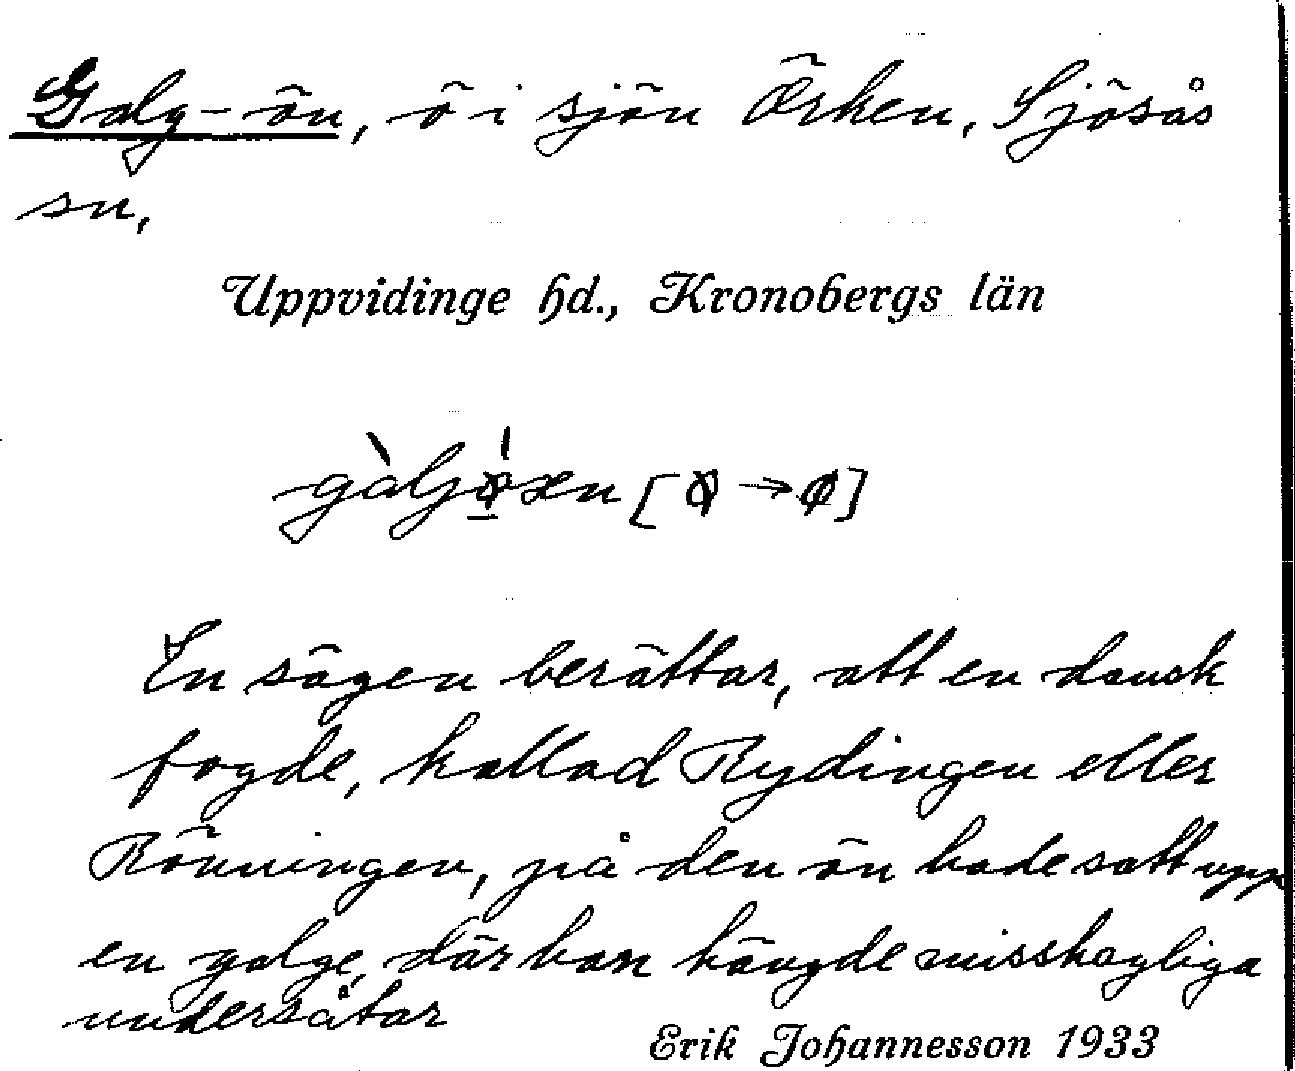 Galg-ön, ö i sjön Örken, Sjösås
sn,
Uppvidinge hd., Kronobergs län
En sägen berättar, att en dansk
fogde, kallad Rydingen eller
Rönningen, på den ön hade satt upp
en galge, där han hängde misshagliga
undersåtar
Erik Johannesson 1933